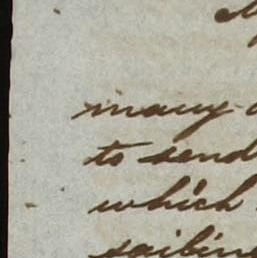 many
to send
which
sailing